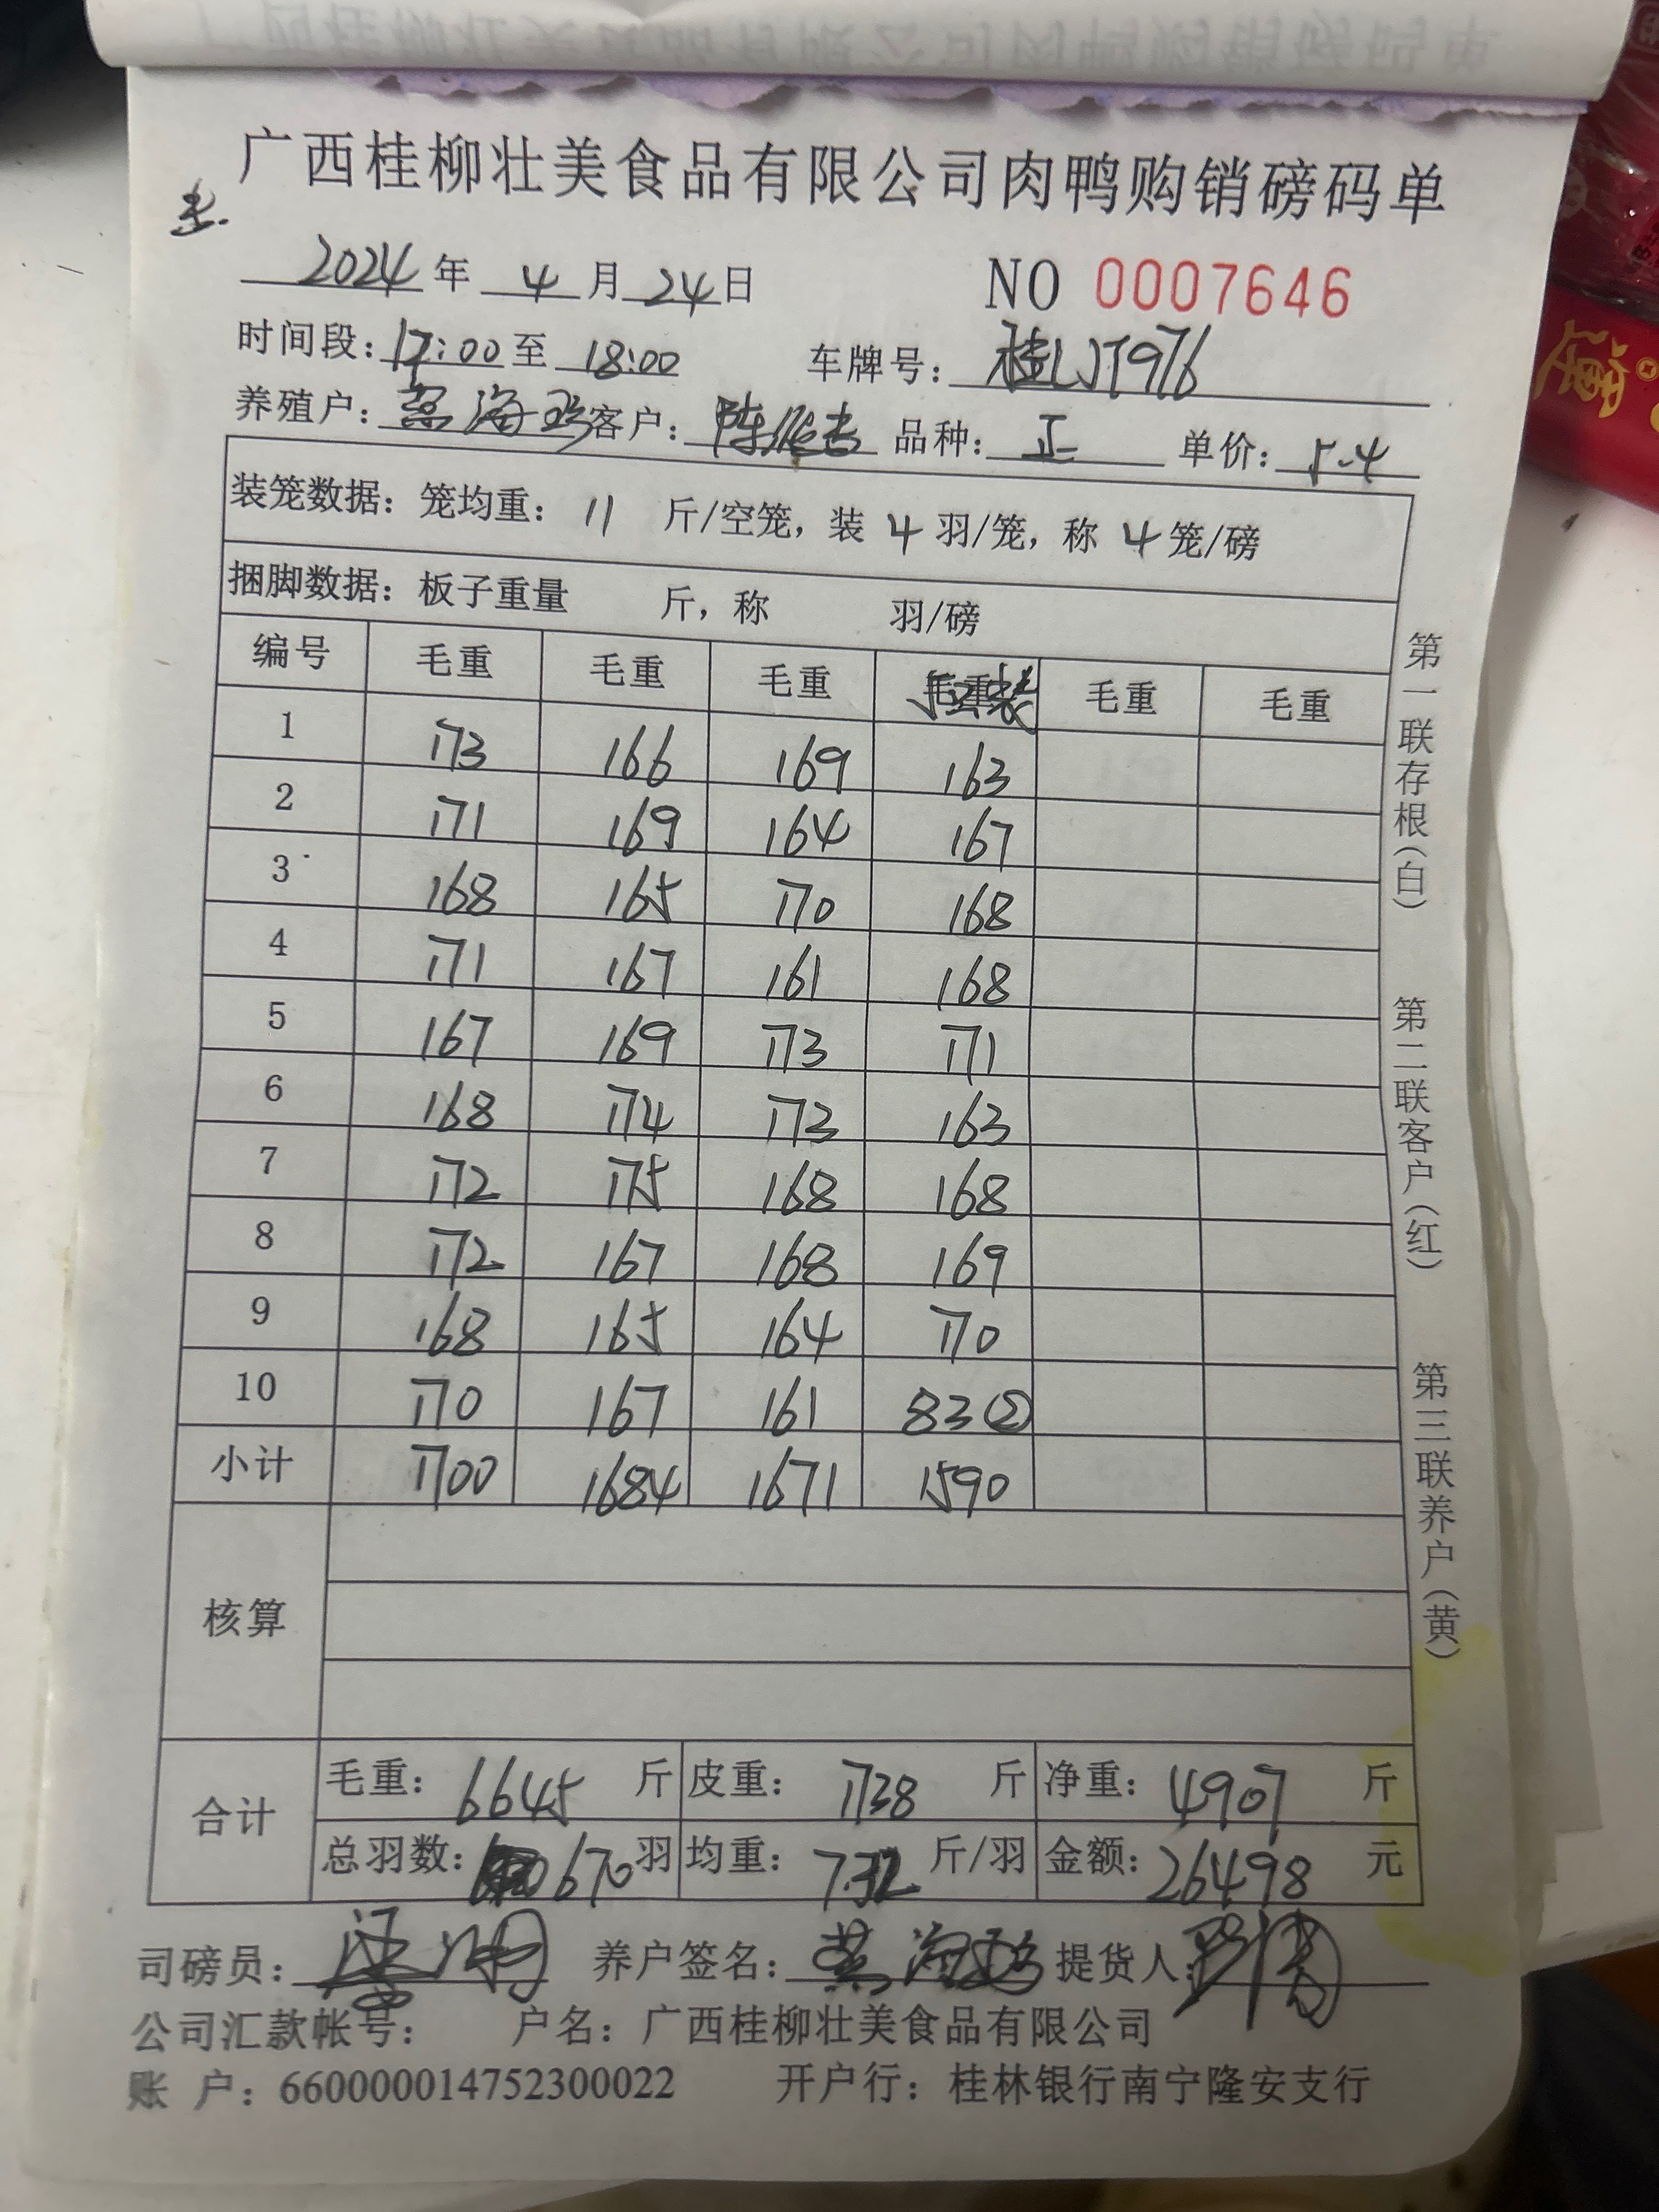 广西桂柳壮美食品有限公司肉鸭购销磅码单
2024年 4月24日 NO 0007646
时间段:17:00至 18:00 车牌号: 桂LJT976
养殖户: 海珍 客户: 陈 品种: 正 单价: 5.4
装笼数据: 笼均重: 11 斤/空笼, 装 4 羽/笼, 称 4 笼/磅
捆脚数据: 板子重量 斤, 称 羽/磅
编号 毛重 毛重 毛重 毛重 毛重 毛重
1 173 166 169 163
2 171 169 164 167
3 168 165 170 168
4 171 167 161 168
5 167 169 173 171
6 168 174 173 163
7 172 175 168 168
8 172 167 168 169
9 168 165 164 170
10 170 167 161 83②
小计 1700 1684 1671 1590
核算
合计
毛重: 6645 斤 皮重: 1738 斤 净重: 4907 斤
总羽数: 670羽 均重: 7.32 斤/羽 金额: 26498 元
司磅员: 养户签名: 提货人:
公司汇款帐号: 户名: 广西桂柳壮美食品有限公司
账 户: 660000014752300022 开户行: 桂林银行南宁隆安支行
第一联存根(白) 第二联客户(红) 第三联养户(黄)